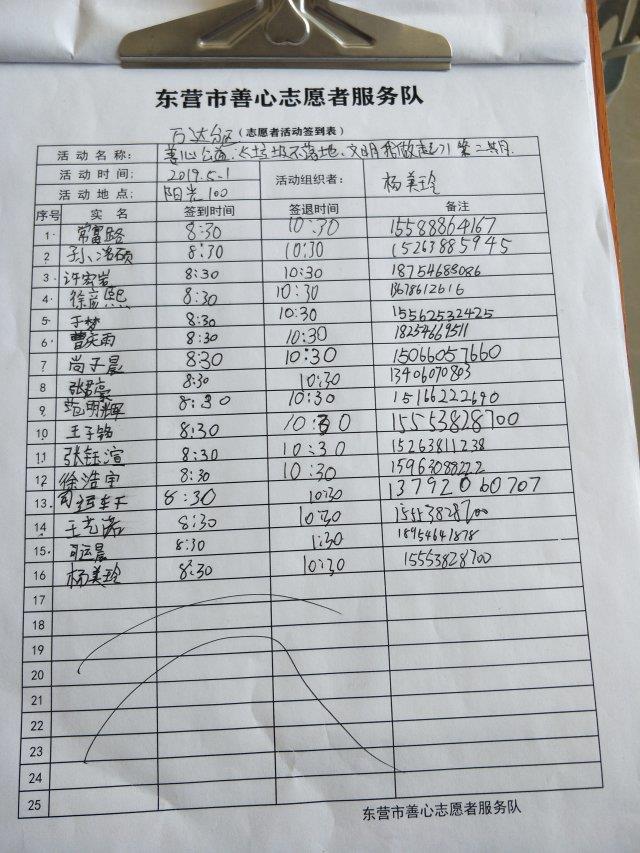 东营市善心志愿者服务队
万达分区(志愿者活动签到表)
活动名称: 善心公益:让垃圾不落地、文明我做起
活动时间: 2019.5.1 活动组织者: 杨美玲
活动地点: 阳光100
序号 实名 签到时间 签退时间 备注
1 常富路 8:30 10:30 15588864167
2 孙浩硕 8:30 10:30 15263885945
3 许宏岩 8:30 10:30 18754688086
4 徐彦熙 8:30 10:30 13678612616
5 于梦 8:30 10:30 15562532425
6 曹庆雨 8:30 10:30 18254669511
7 尚子晨 8:30 10:30 15066057660
8 张君豪 8:30 10:30 13406070803
9 范明辉 8:30 10:30 15166222690
10 王子铭 8:30 10:30 15553828700
11 张钰渲 8:30 10:30 15263811238
12 徐浩宇 8:30 10:30 15963088222
13 8:30 10:30 13792060707
14 8:30 10:30 15553828700
15 司运晨 8:30 1:30 18954641878
16 杨美玲 8:30 10:30 15553828700
17
18
19
20
21
22
23
24
25
东营市善心志愿者服务队